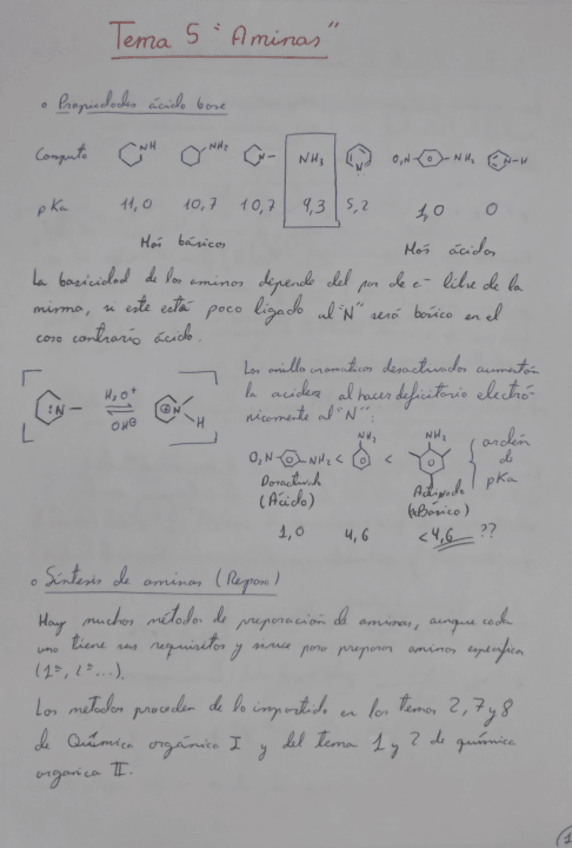 Tema 5 "Aminas"
o Propiedades ácido base
Compuesto NH NH₂ N NH₃ N O₂N NH₂ N-H
pKa 11,0 10,7 10,7 9,3 5,2 1,0 0
Más básicos Más ácidos
La basicidad de las aminas depende del par de e⁻ libre de la
misma, si este está poco ligado al "N" será básico en el
caso contrario ácido.
Los anillos aromáticos desactivados aumentan
la acidez al hacer deficitario electró-
nicamente al "N":
:N H₂O⁺ OH⊖ ⊕N H
O₂N NH₂ < NH₂ < NH₂ orden de pKa
Desactivado Activado
(Ácido) (Básico)
1,0 4,6 <4,6 ??
o Síntesis de aminas (Repaso)
Hay muchos métodos de preparación de aminas, aunque cada
uno tiene sus requisitos y sirve para preparar aminas específicas
(1ª, 2ª...).
Los métodos proceden de lo impartido en los temas 2, 7 y 8
de Química orgánica I y del tema 1 y 2 de química
orgánica II.
1